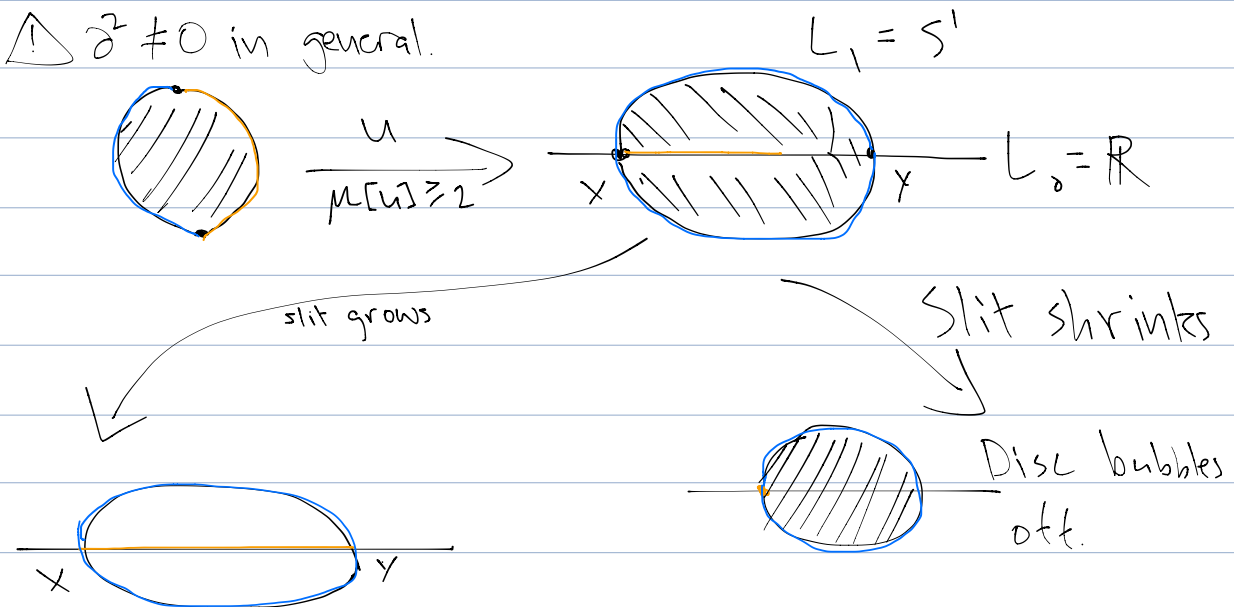 ⚠ ∂² ≠ 0 in general.
L₁ = S¹
u
μ[u] ≥ 2
X
Y
L₀ = ℝ
slit grows
Slit shrinks
Disc bubbles
off.
X
Y